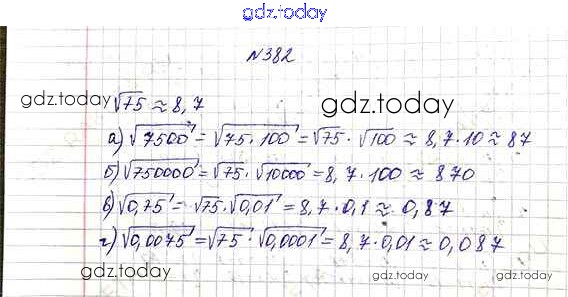 gdz.today
№382
√75 ≈ 8,7
gdz.today
gdz.today
а) √7500 = √75·100 = √75 · √100 ≈ 8,7·10 ≈ 87
б) √750000 = √75 · √10000 = 8,7·100 ≈ 870
в) √0,75 = √75 · √0,01 = 8,7·0,1 ≈ 0,87
г) √0,0075 = √75 · √0,0001 = 8,7·0,01 ≈ 0,087
gdz.today
gdz.today
gdz.today